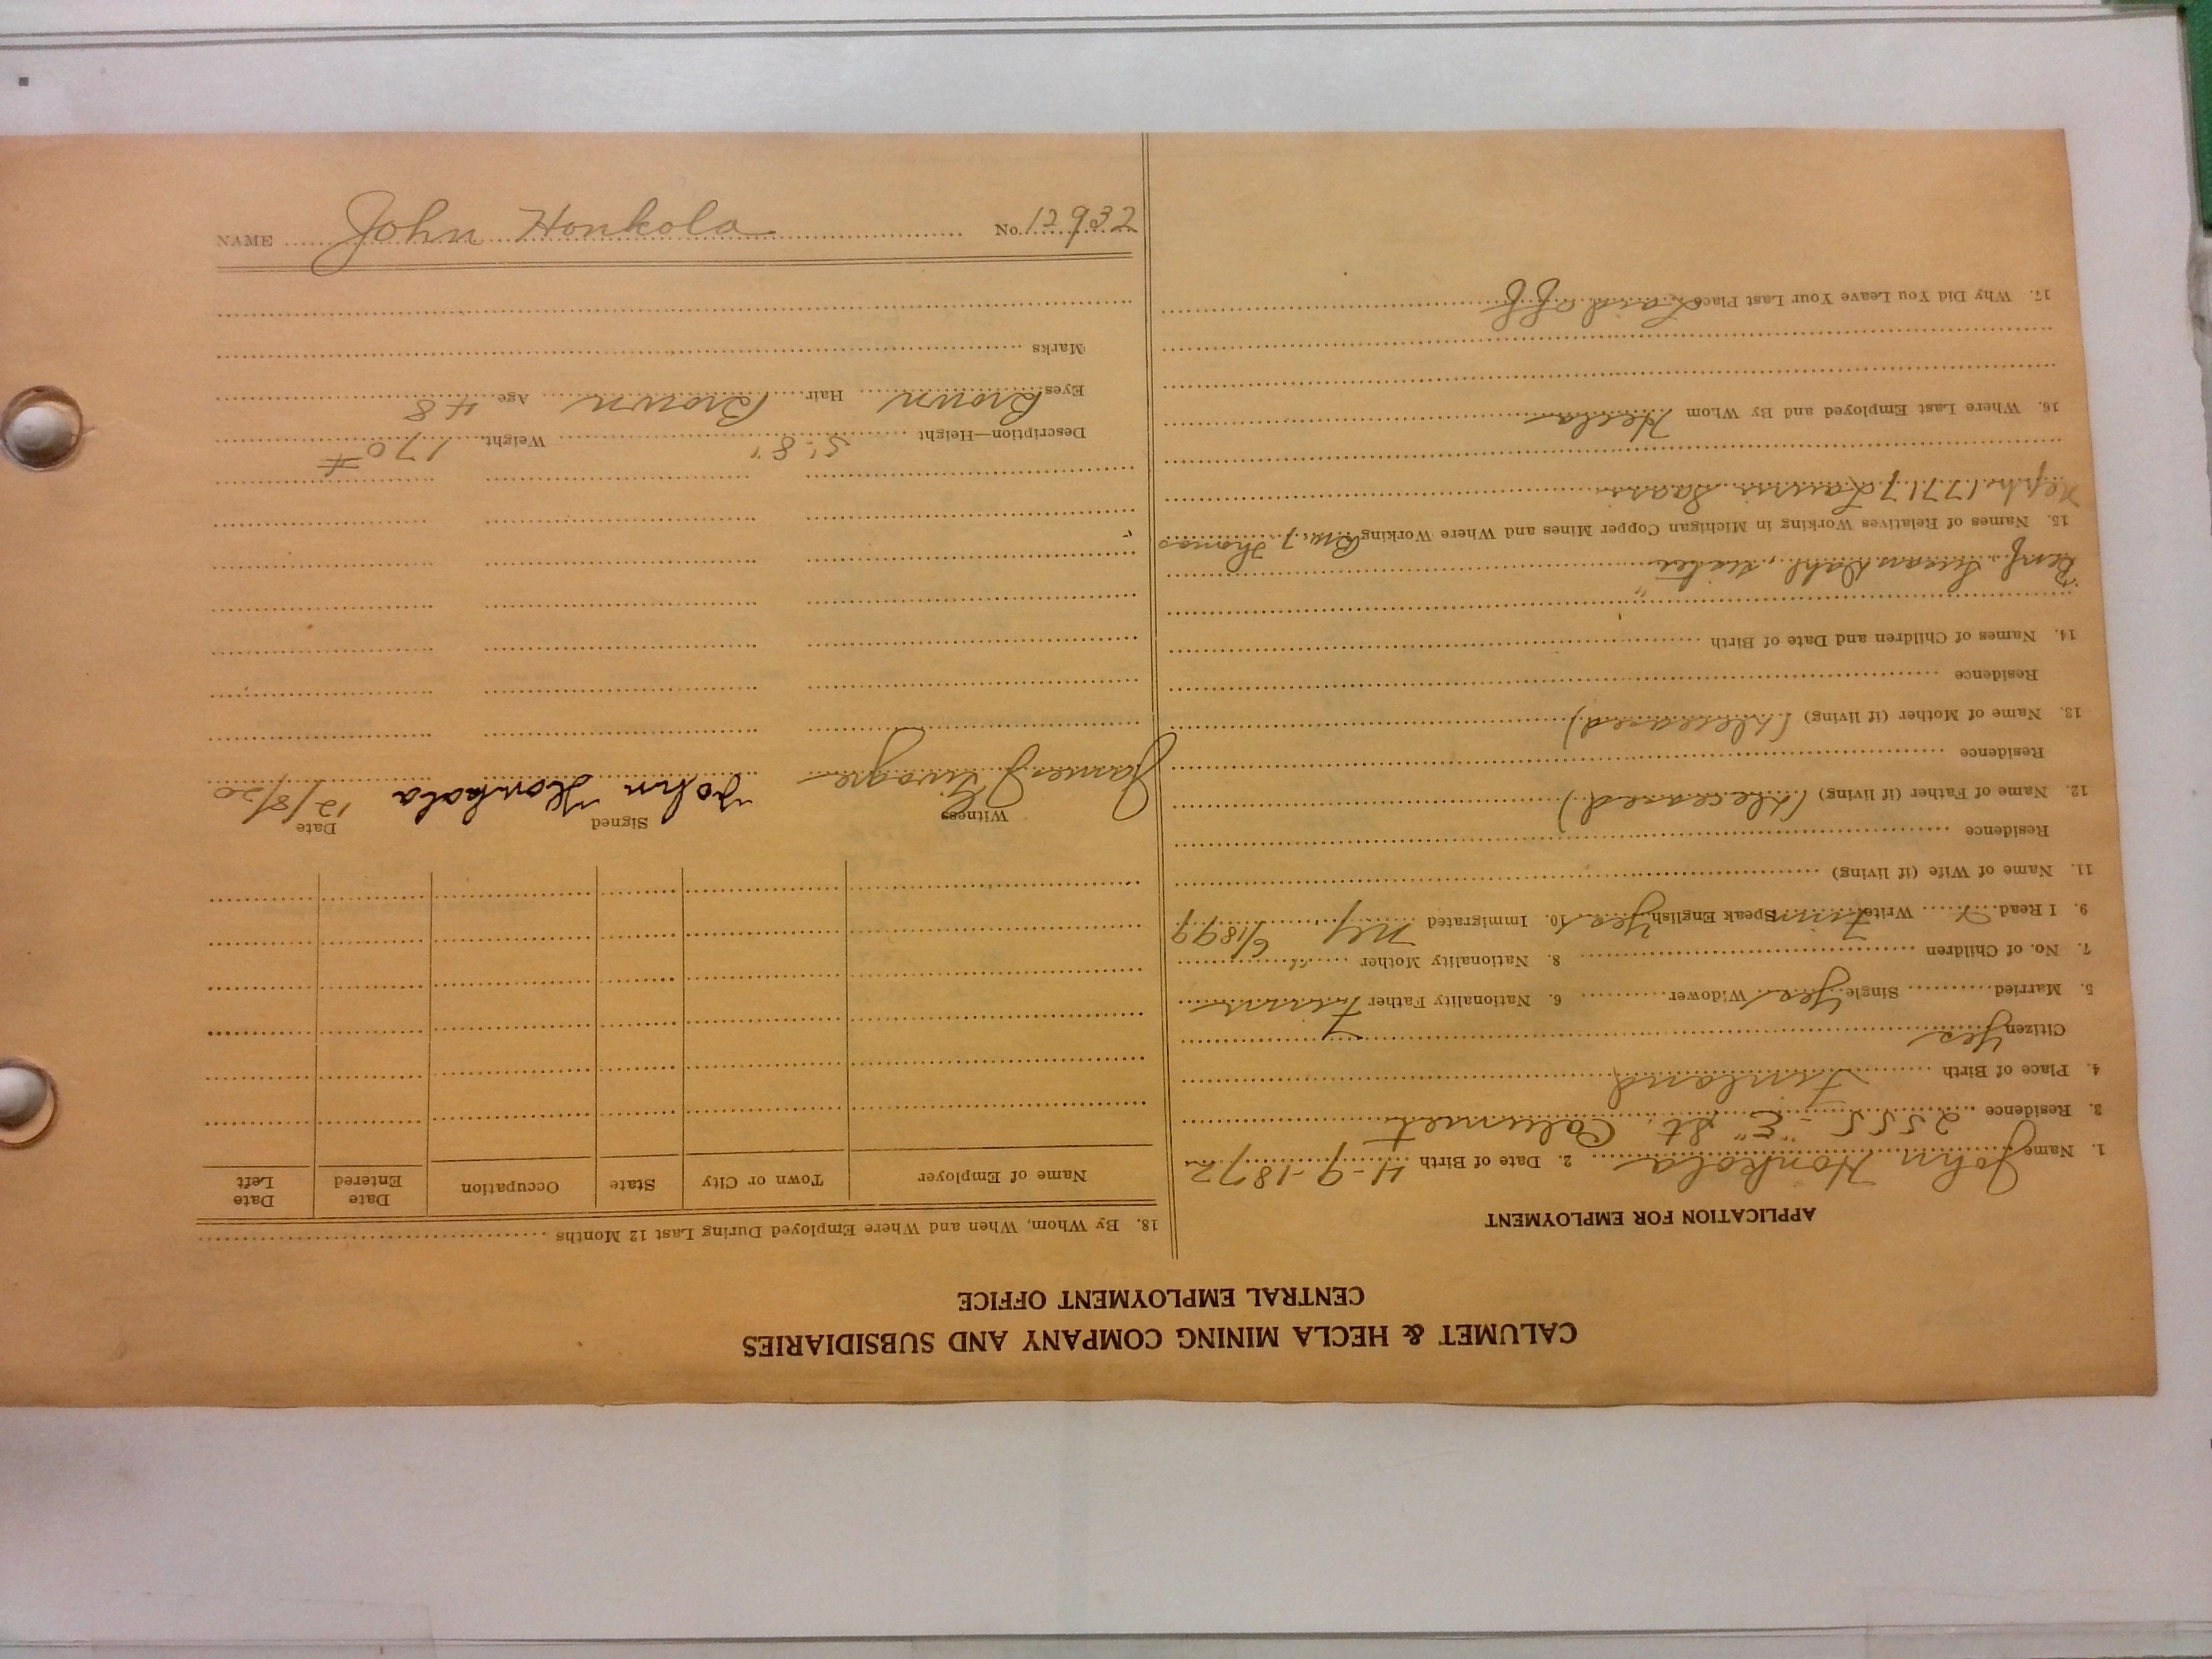 CALUMET & HECLA MINING COMPANY AND SUBSIDIARIES
CENTRAL EMPLOYMENT OFFICE
APPLICATION FOR EMPLOYMENT
1. Name John Honkola 2. Date of Birth 4-9-1872
3. Residence 2555 - "E" St. Calumet
4. Place of Birth Finland
Citizen Yes
5. Married Single Yes Widower 6. Nationality Father Finn
7. No. of Children 8. Nationality Mother "
9. I Read Write Finn Speak English Yes 10. Immigrated NY 6/1899
11. Name of Wife (if living)
Residence
12. Name of Father (if living) (deceased)
Residence
13. Name of Mother (if living) (deceased)
Residence
14. Names of Children and Date of Birth
Benf. Susan Dahl, sister
15. Names of Relatives Working in Michigan Copper Mines and Where Working Thomas
Neph. 17717 Lauri Saari
16. Where Last Employed and By Whom Hecla
17. Why Did You Leave Your Last Place Laid off
18. By Whom, When and Where Employed During Last 12 Months
Name of Employer Town or City State Occupation Date Entered Date Left
Witness Signed Date
James John Honkola 12/8/20
Description—Height 5' 8" Weight 170 #
Eyes Brown Hair Brown Age 48
Marks
NAME John Honkola No. 12932